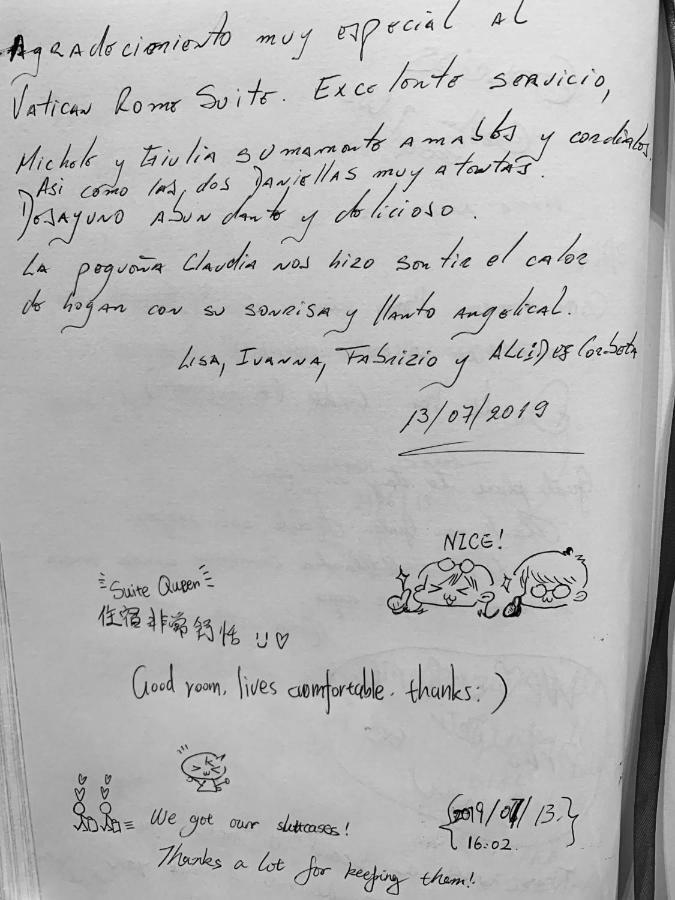 Agradecimiento muy especial al
Vatican Rome Suite. Excelente servicio,
Michele y Giulia sumamente amables y cordiales.
Asi como las, dos Daniellas muy atentas.
Desayuno abundante y delicioso.
La pequeña Claudia nos hizo sentir el calor
de hogar con su sonrisa y llanto angelical.
Lisa, Ivanna, Fabrizio y ALCIDES
13/07/2019
NICE!
Suite Queen
住宿非常舒恬
Good room, lives comfortable. thanks:)
We got our suitcases!
Thanks a lot for keeping them!
{2019/07/13.
16:02.}